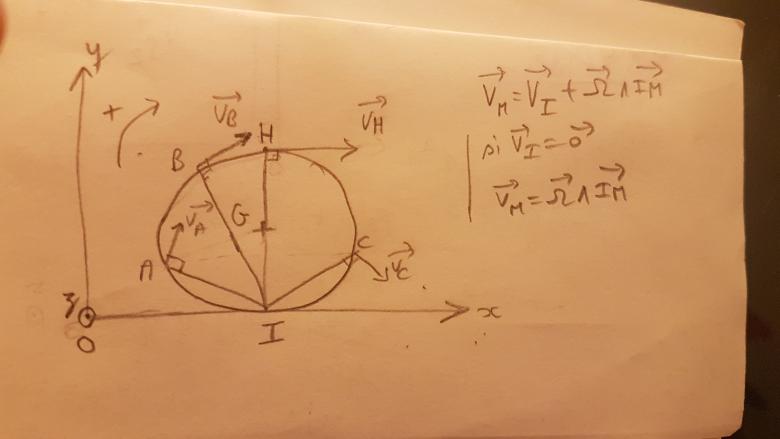 y
+
V⃗_B
H
V⃗_H
B
G
V⃗_A
A
C
V⃗_C
z
O
I
x
V⃗_M = V⃗_I + Ω⃗ ∧ IM⃗
si V⃗_I = 0⃗
V⃗_M = Ω⃗ ∧ IM⃗